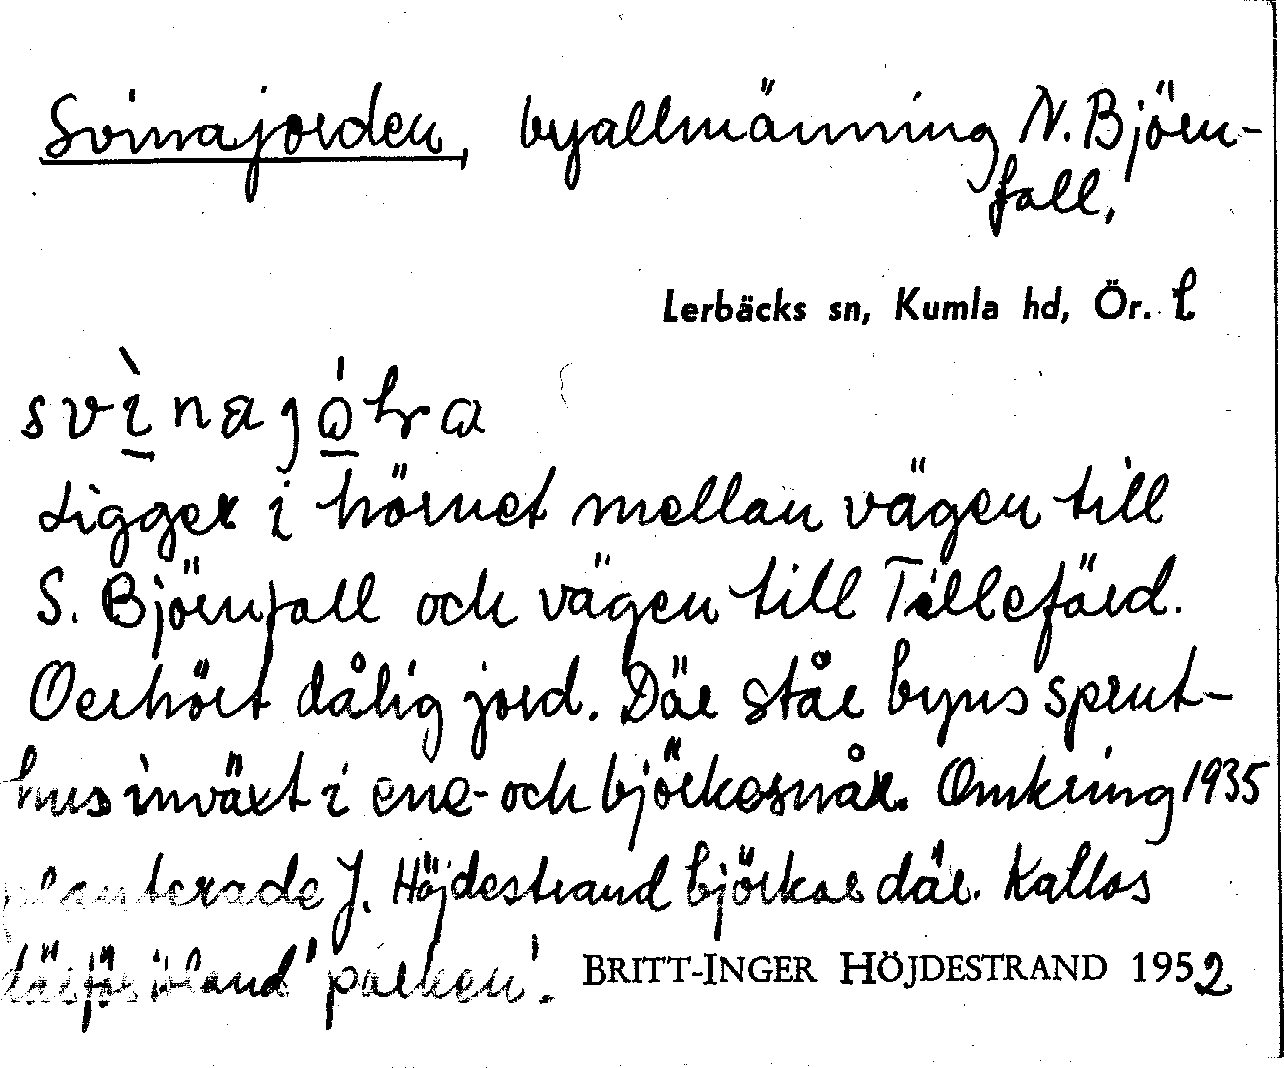 Svinajorden, byallmänning N. Björn-
fall.
Lerbäcks sn, Kumla hd, Ör. l
Ligger i hörnet mellan vägen till
S. Björnfall och vägen till Tillefärd.
Oerhört dålig jord. Där står byns sprut-
hus inväxt i ene- och björkesnår. Omkring 1935
planterade J. Höjdestrand björkar där. Kallas
därför ibland "parken".
BRITT-INGER HÖJDESTRAND 1952